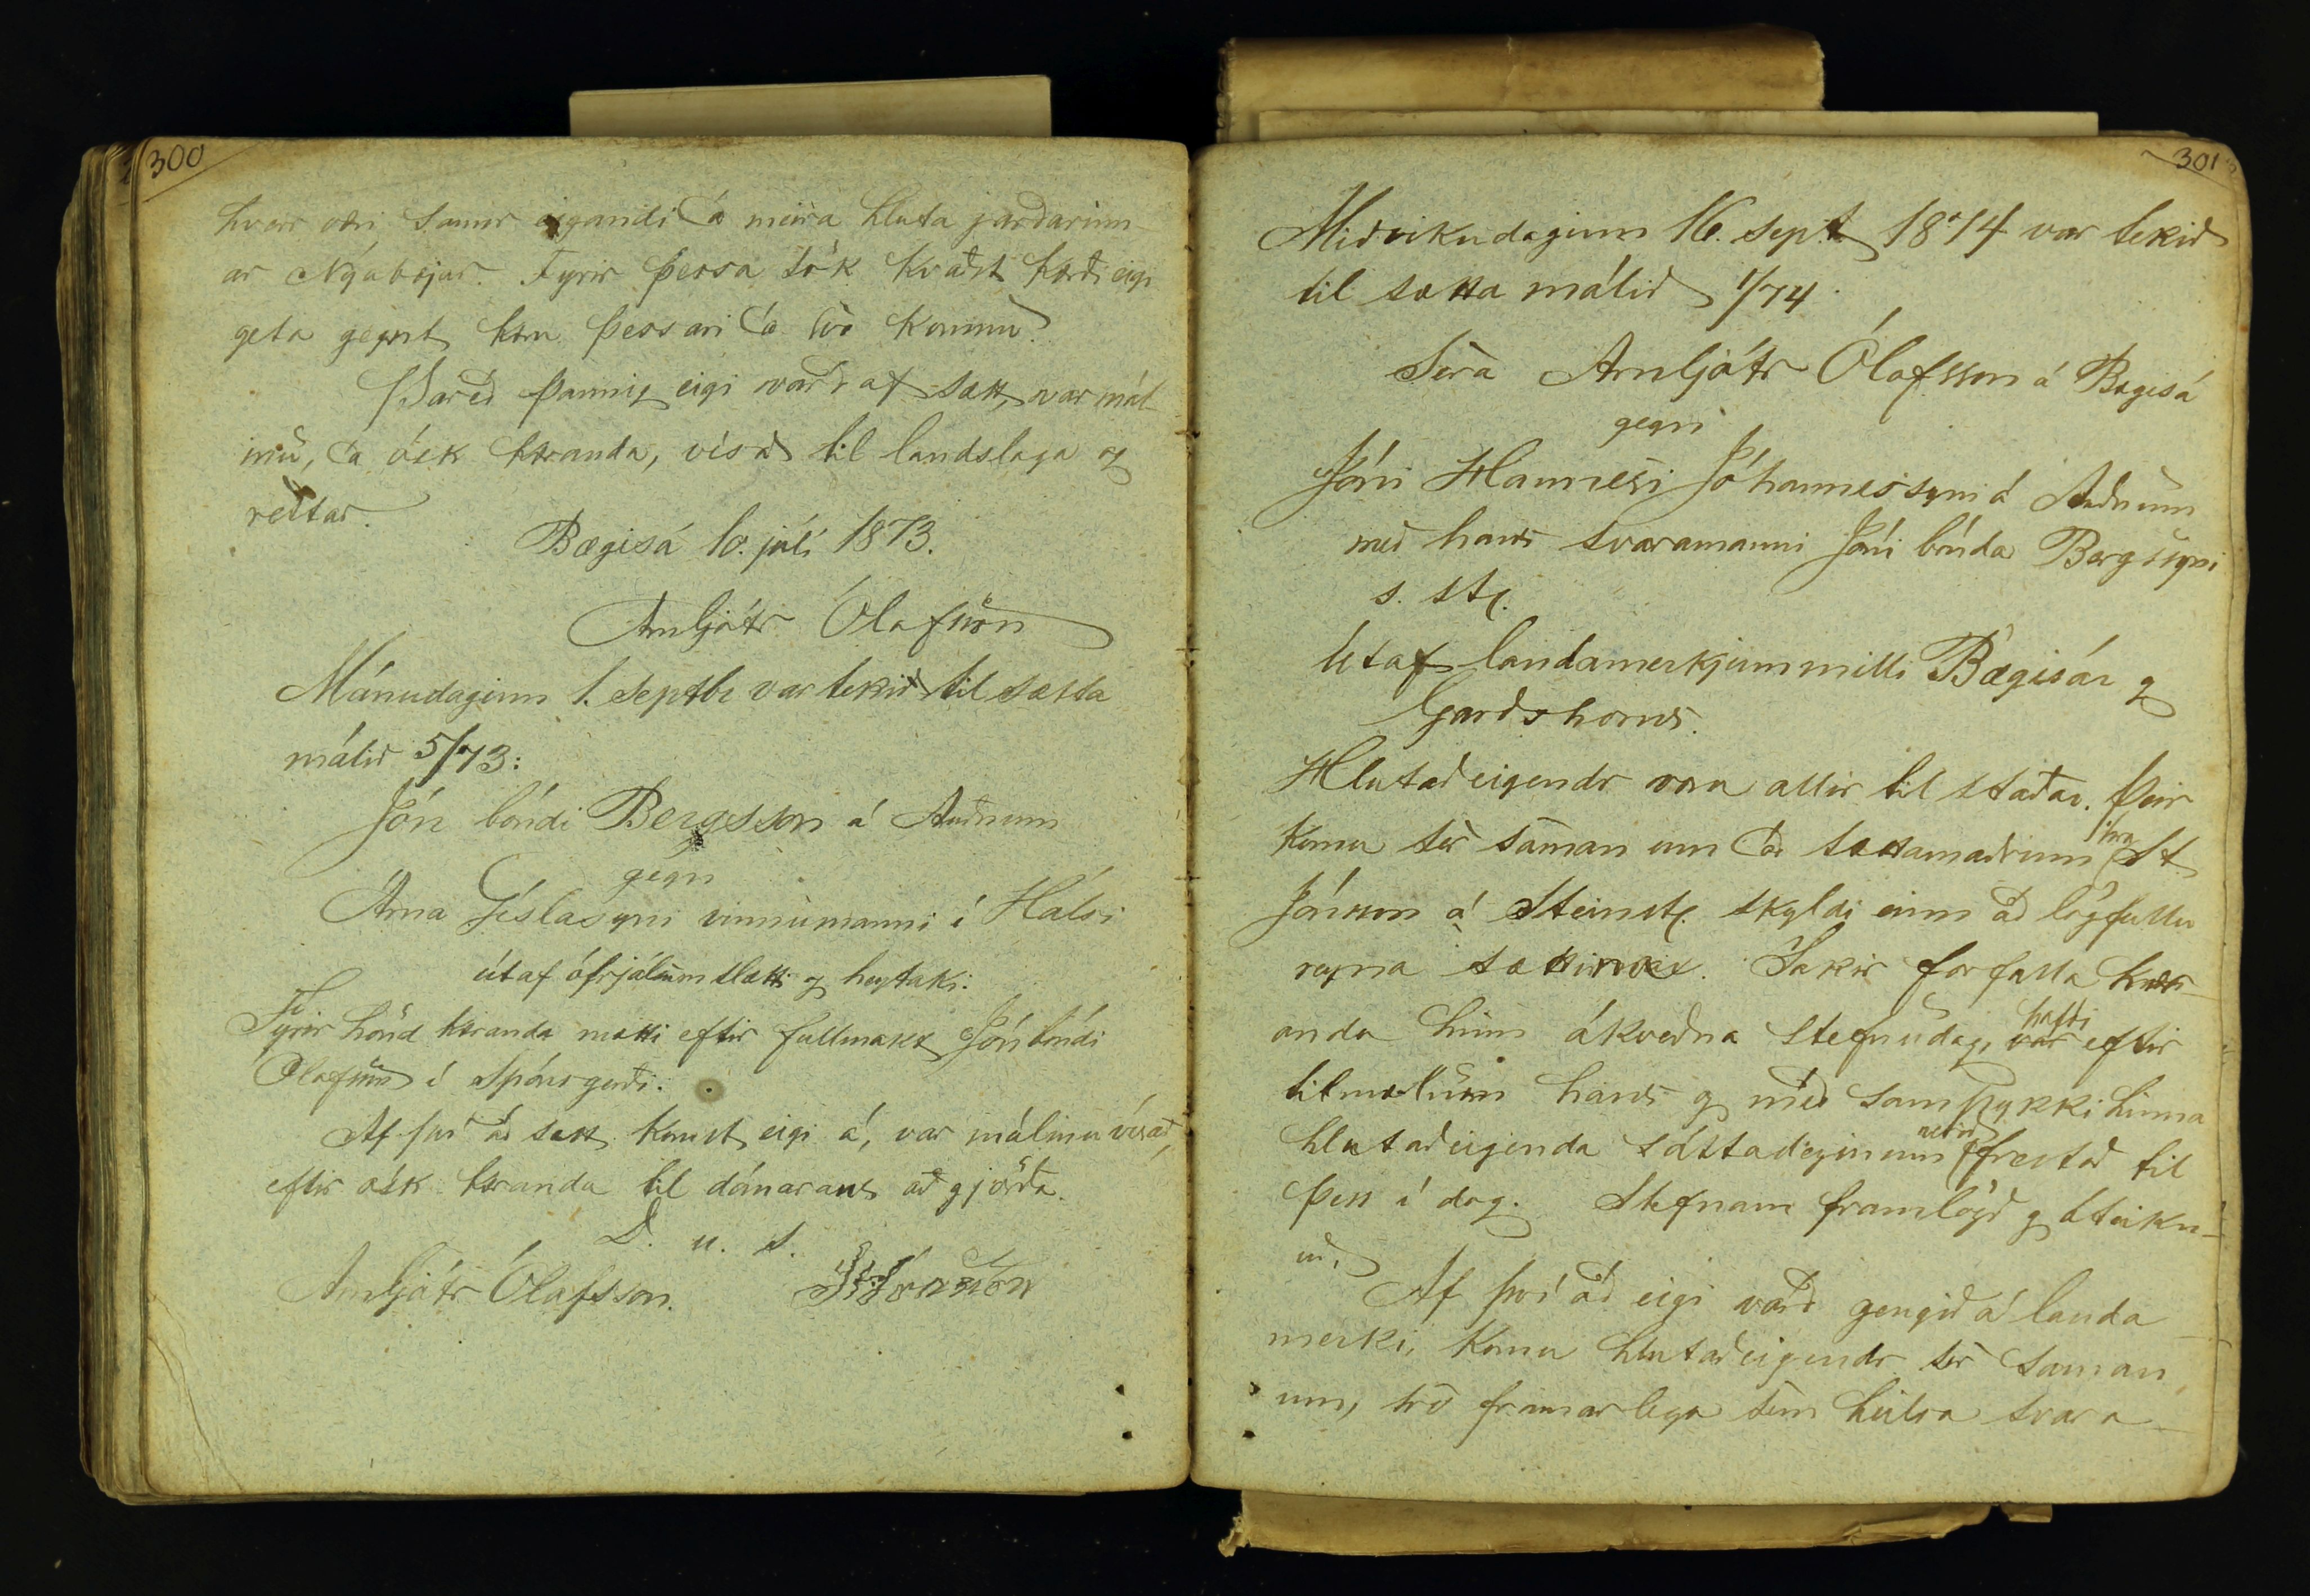 300
hverr væri sannr eigandi á meira hluta jarðarinn-
ar Nýabæjar. Fyrir þessa sök kvaðst kærði eigi
geta gegnt kæru þessari á svo komnu.
Þareð þannig eigi varð af sætt, var mál-
inu, á ósk kæranda, vísað til landslaga og
réttar.
Bægisá 10. júlí 1873.
Arnljótr Ólafsson
Mánudaginn 1. Septbr var tekið til sætta
málið 5/73:
Jón bóndi Bergsson á Auðnum
gegn
Árna Gíslasyni vinnumanni í Hálsi
útaf ófrjálsum slætti og heytaki.
Fyrir hönd kæranda mætti eftir fullmakt Jón bóndi
Olafsson í Spónsgerði.
Af því að sætt komst eigi á, var málinu vísað,
eftir ósk kæranda til dómarans aðgjörða.
D. u. s.
Arnljótr Ólafsson. St. Jónsson
301
Miðvikudaginn 16. sept. 1874 var tekið
til sætta málið 1/74.
Séra Arnljótr Ólafsson á Bægisá
gegn
Jóni Hannesi Jóhannessyni á Auðnum
með hans svaramanni Jóni bónda Bergssyni
s. st.
Útaf landamerkjum milli Bægisár og
Garðshorns.
Hlutaðeigendr voru allir til staðar. Þeir
komu sér saman um að sættamaðrinn hra St.
Jónsson á Steinst. skyldi einn að lögfullu
reyna sættina. Sakir forfalla kær-
anda hinn ákveðna stefnudag, hafði eftir
tilmælum hans og með samþykki hinna
hlutaðeigenda sáttadeginum verið frestað til
þess í dag. Stefnan framlögð og áteikn-
uð.
Af því að eigi varð gengið á landa
merki, komu hlutaðeigendr sér saman
um, svo framarlega sem hulsa svara